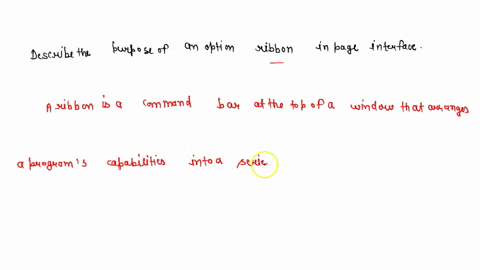 Describe the purpose of an option ribbon in page interface.
A ribbon is a command bar at the top of a window that arranges
a program's capabilities into a serie